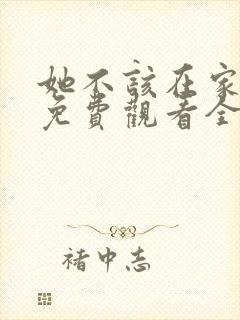 她不該在家
免費觀看全
褚中志